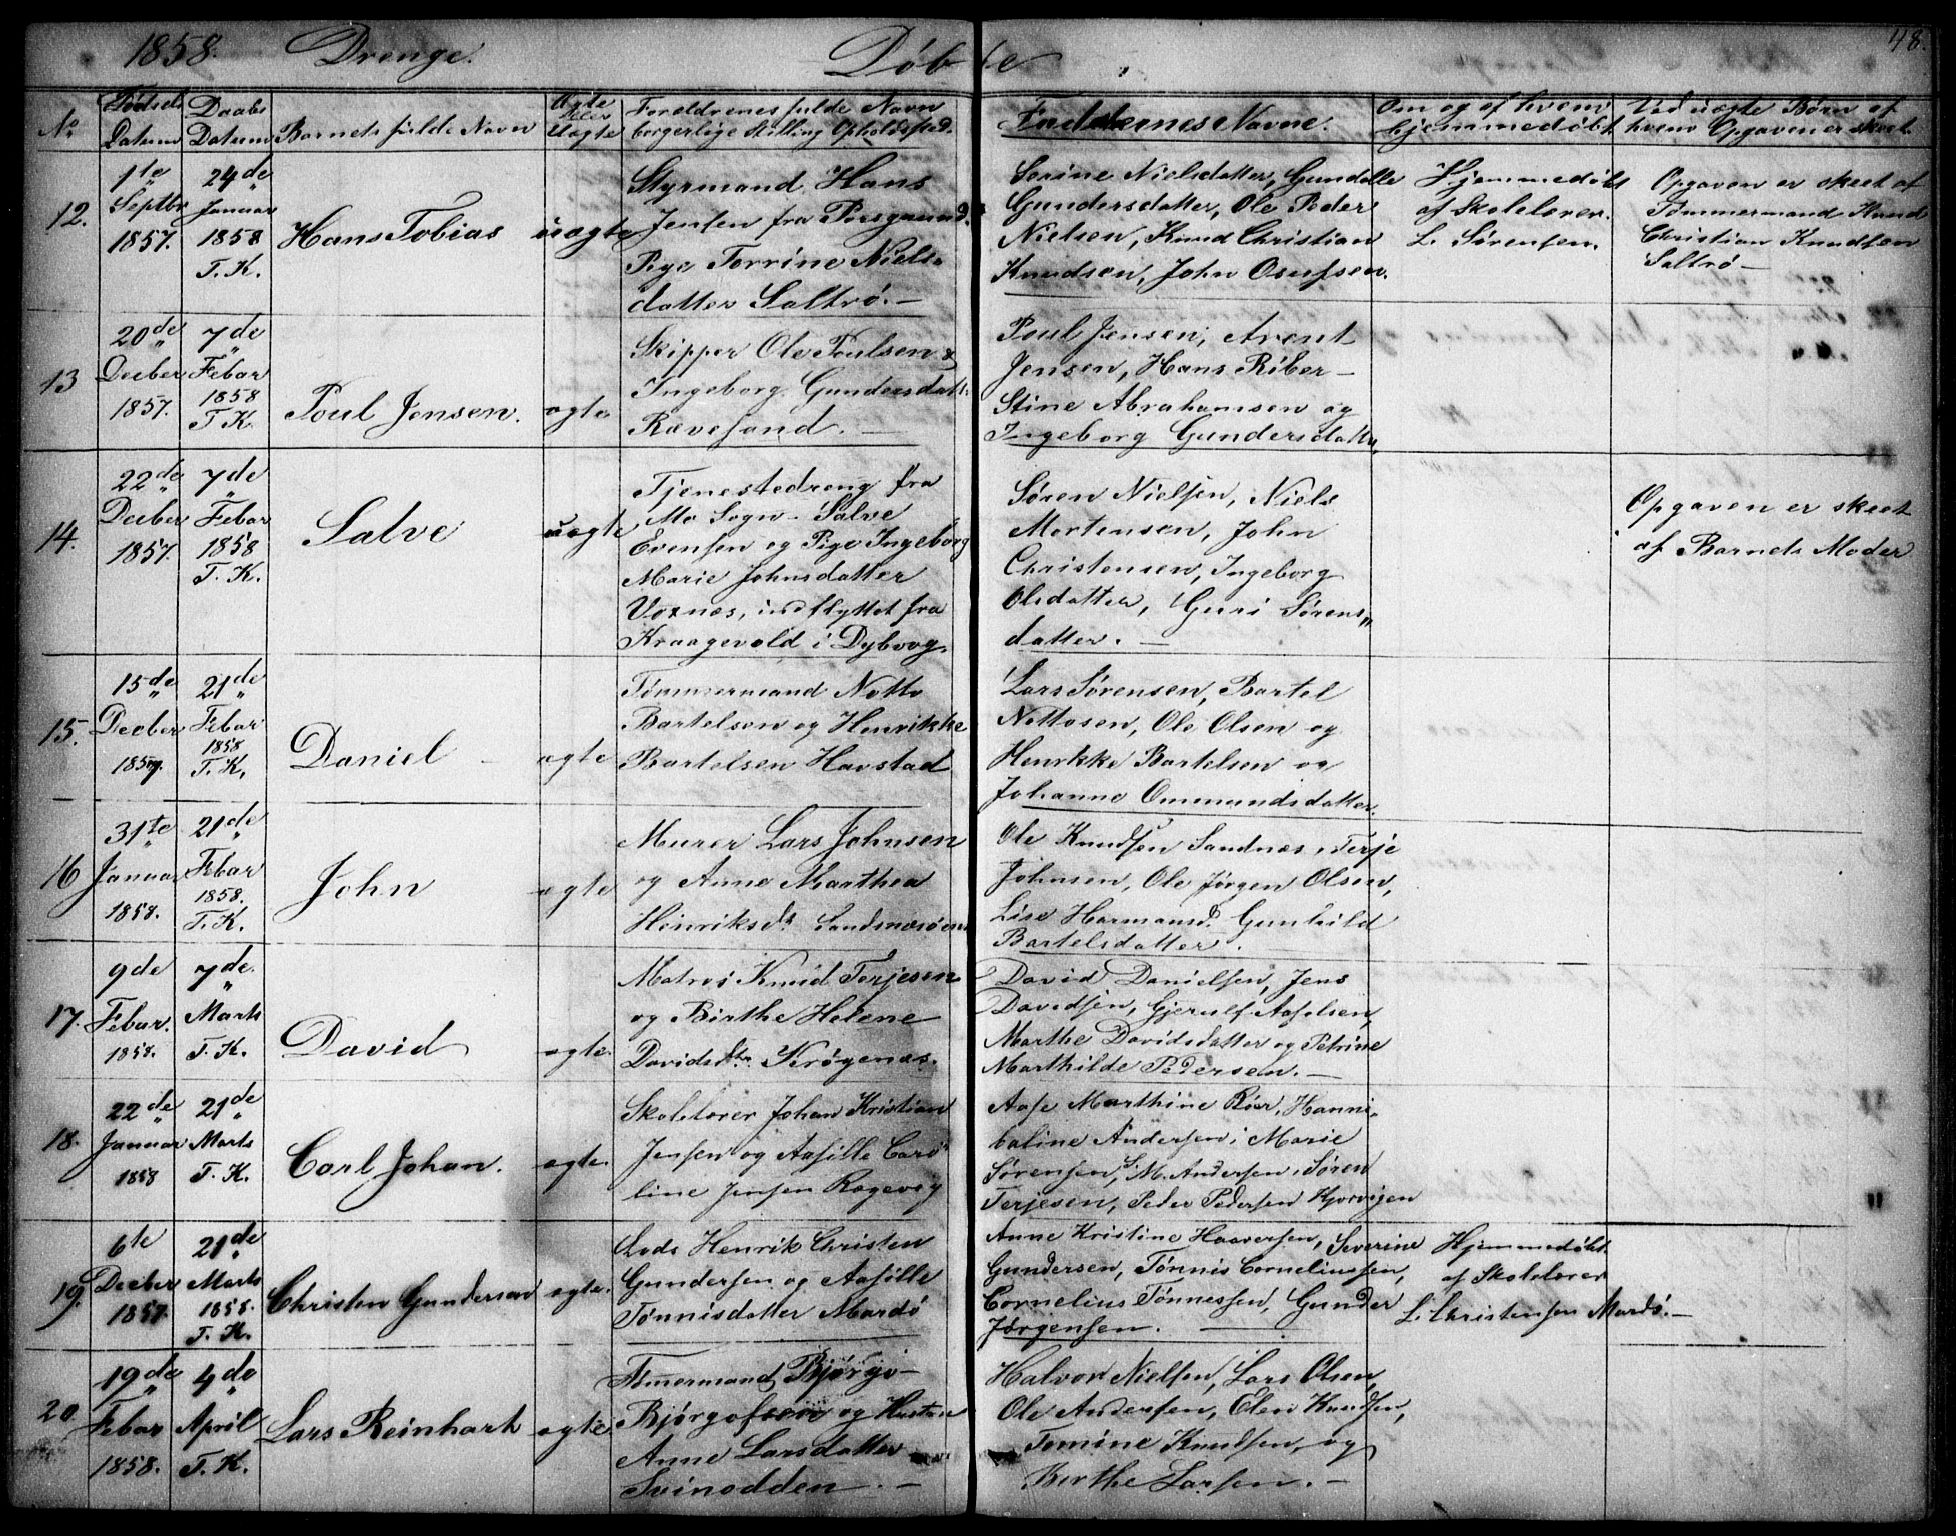 1858. Drenge. Döbte 48.
No
Födsels Datum
Daabs Datum
Barnets fulde Navn
Ægte eller Uægte
Foreldrenes fulde Navn
borgerlige Stilling Opholdssted.
Faddernes Navne.
Om og af hvem
hjemmedöbt
Ved uægte Börn af
hvem Opgaven er skeet.
12.
1ste Septbr 1857.
24de Januar 1858 T. K.
Hans Tobias
uægte
Styrmand Hans
Jensen fra Porsgrund.
Pige Torrine Niels-
datter Saltrö. —
Serine Nielsdatter, Gundelle
Gundersdatter, Ole Peder
Nielsen, Knud Christian
Knudsen, John Osufsen.
Hjemmedöbt
af Skolelærer
L. Sörensen.
Opgaven er skeet af
Tömmermand Knud
Christian Knudsen
Saltrö —
13
20de Decber 1857.
7de Febar 1858 T. K.
Poul Jensen.
ægte
Skipper Ole Poulsen &
Ingeborg Gundersdatt.
Rævesand. —
Poul Jensen, Arent
Jensen, Hans Röber —
Stine Abrahamsen og
Ingeborg Gundersdatter
14.
22de Decber 1857.
7de Febar 1858 T. K.
Salve
uægte
Tjenestedreng fra
Mo Sogn - Salve
Evensen og Pige Ingeborg
Marie Johnsdatter
Voxnæs, indflyttet fra
Kraagevold i Dybvog.
Sören Nielsen, Niels
Mortensen, John
Christensen, Ingeborg
Olsdatter, Guri Sörens
datter. —
Opgaven er skeet
af Barnets Moder
15.
15de Decber 1857.
21de Febar 1858 T. K.
Daniel
ægte
Tömmermand Notto
Bartelsen og Henrikke
Bartelsen Havstad
Lars Sörensen, Bartel
Nottosen, Ole Olsen og
Henrkke Bartelsen og
Johanne Ommundsdatter.
16
31te Januar 1858.
21de Febar 1858. T. K.
John
ægte
Murer Lars Johnsen
og Anne Marthea
Henriksdt. Sandnæsöen
Ole Knudsen Sandnæs, Terje
Johnsen, Ole Jörgen Olsen,
Lise Hermansd. Gunhild
Bartelsdatter.
17.
9de Febar. 1858.
7de Marts T. K.
David
ægte.
Matros Knud Terjesen
og Birthe Helene
Davidsdtr. Krögenæs.
David Danielsen, Jens
Davidsen, Gjerulf Aslelsen,
Marthe Davidsdatter og Petrine
Marthilde Pedersen. —
18.
22de Januar 1858
21de Marts T. K.
Carl Johan.
ægte.
Skolelærer Johan Kristian
Jensen og Aasille Caro
line Jensen Rægevig
Aase Marthine Röer, Hanni-
baline Andersen, Marie
Sörensen, S. M. Andersen, Sören
Terjesen, Peder Pedersen Kjorvigen
19.
6te Decber 1857.
21de Marts 1858. T. K.
Christen Gundersen
ægte.
Lods Henrik Christen
Gundersen og Aasille
Tönnisdatter Mardö
Anne Kristine Haaversen, Severine
Gundersen, Tönnis Corneliussen,
Cornelius Tönnessen, Gunder
Jörgensen. —
Hjemmedöbt
af Skolelærer
L. Christensen Mardö. —
20
19de Febar 1858.
4de April T. K.
Lars Reinhart
ægte
Tömmermand Björgo-
Björgofsen og Hustru
Anne Larsdatter
Svinodden. —
Halvor Nielsen, Lars Olsen,
Ole Andersen, Elen Knudsen,
Tomine Knudsen, og
Berthe Larsen. —